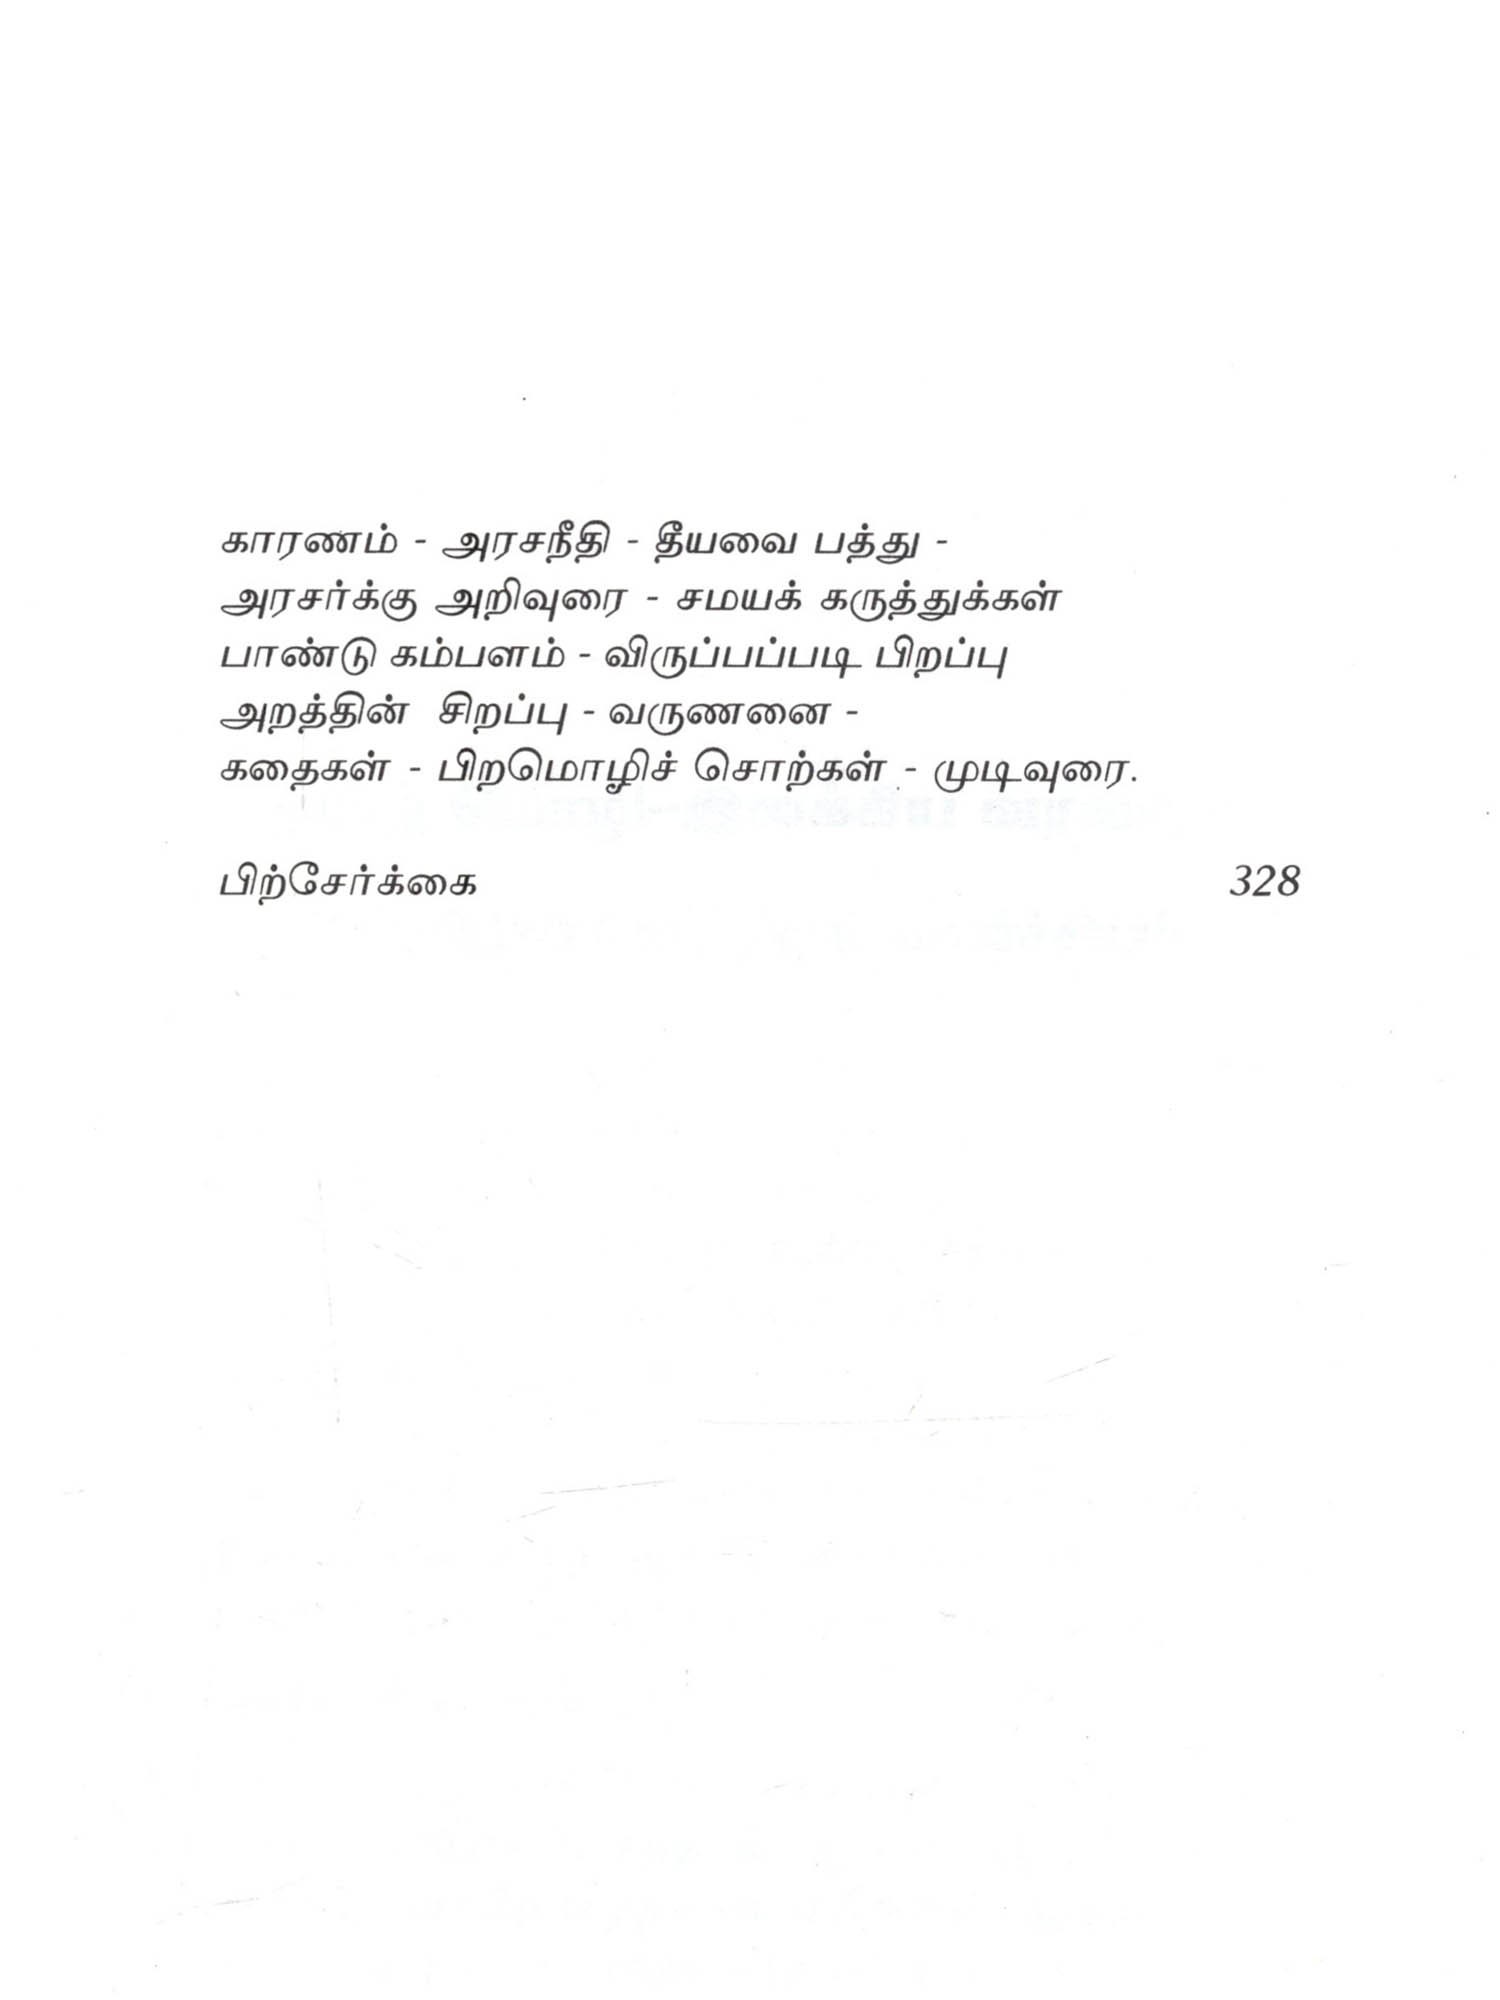 காரணம் - அரசநீதி - தீயவை பத்து -
அரசர்க்கு அறிவுரை - சமயக் கருத்துக்கள்
பாண்டு கம்பளம் - விருப்பப்படி பிறப்பு
அறத்தின் சிறப்பு - வருணனை -
கதைகள் - பிறமொழிச் சொற்கள் - முடிவுரை.
பிற்சேர்க்கை 328